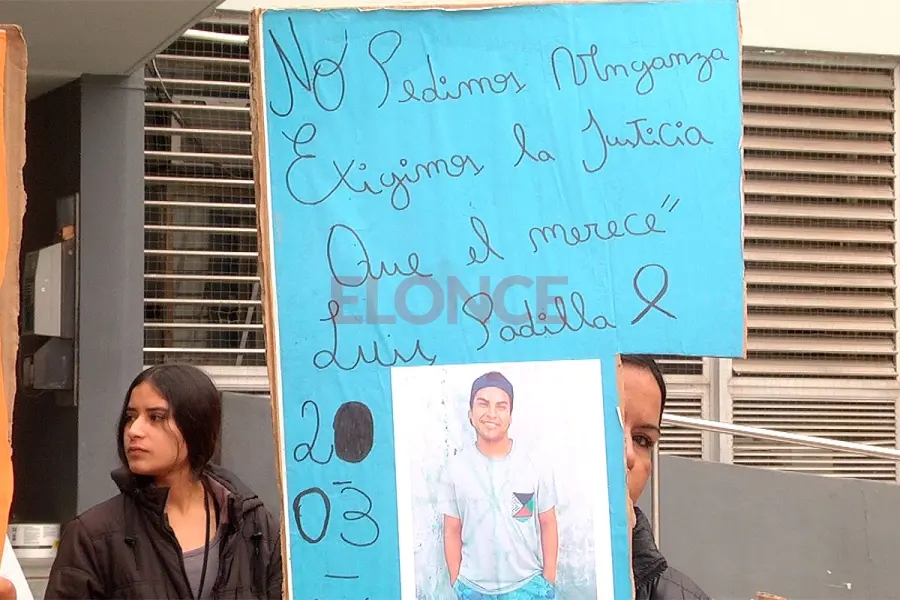 No Pedimos Venganza
Exigimos la Justicia
Que el merece"
ELONCE
Luis Padilla
20
03